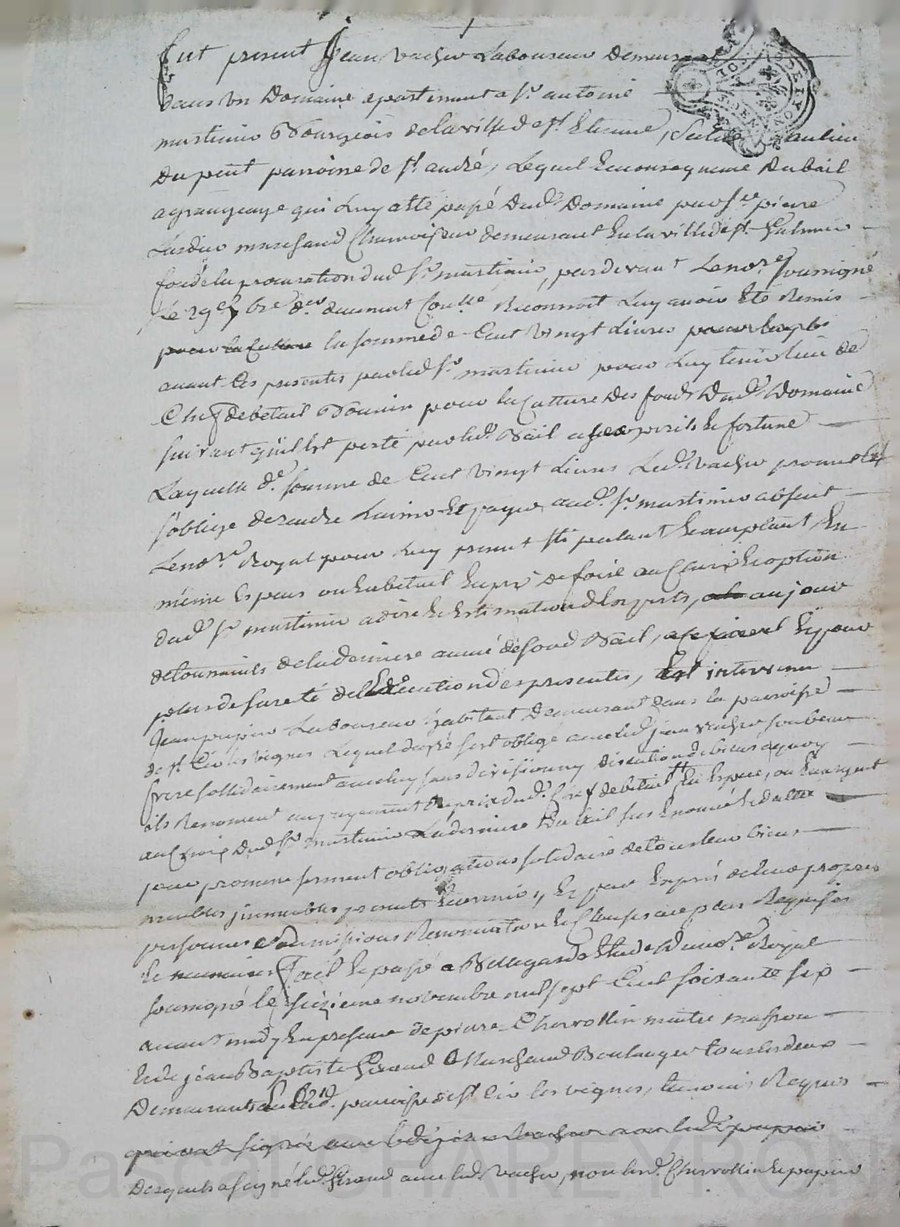 Fut présent Jean vacher Laboureur Demeurant
dans un Domaine apartenant a Sr antoine
martinier Bourgeois de la ville de St Etienne, au lieu
Du parroisse de St andré, Lequel En consequence Du bail
a grangeage qui Luy a été passé Dud. Domaine par Sr pierre
marchand Chamoiseur demeurant En la ville de St Galmier
fondé de la procuration dud. Sr martinier, pardevant Le nore Soussigné
Le 29e 7bre der duement Conllé, Reconnoit Luy avoir Eté Remis
pour la Culture la somme de Cent vingt Livres
avant Ces presentes par led. Sr martinier pour Luy tenir lieu de
Cheptel de betail Bouvin pour la Culture Des fonds Dud. Domaine
suivant qu'il Est porté par led. Bail a ses perils Et fortune
Laquelle de. somme de Cent vingt Livres Led. vacher promet Et
s'oblige de rendre Et payer aud. Sr martinier absent
Le nore Royal pour Luy present Stipulant Et acceptant En
même Espece ou En betail En prix de foire au Choix Et option
dud. Sr martinier a dire Et Estimation d'Experts, au jour
de Toussaints de la derniere année de son d. Bail, Et pour
plus de sureté de L'Execution des presentes, Est intervenu
Jean papier Laboureur habitant Demeurant dans la parroisse
de St Cir les vignes Lequel de gré s'est obligé avec led. jean vacher son beau
frere sollidairement avec luy sans division ny discution de biens a quoy
ils Renoncent au payement du prix dud. Cheptel de betail En Espece, ou En argent
au Choix Dud. Sr martinier La derniere Du bail sus Enoncé Et datté
pour promesse serment obligations solidaire de tous leurs biens
meubles immeubles presents Et avenir, Et par Exprés de leurs propres
personnes soumissions Renonciations Et Clauses a ce plus Requises
Et necessaires fait Et passé a Bellegarde Etude Du nore Royal
soussigné le seizieme novembre mil sept Cent soixante six
avant midy En presence de pierre Chavrollin maitre masson
Et de jean Baptiste Giraud Marchand Boulanger tous les deux
Demeurants En lad. parroisse de St Cir les vignes, temoins Requis
qui ont signés avec led. jean vacher non led. papier
Desquels a signé led. Giraud avec led. vacher, non led. Chavrollin Et papier
Pascal CHAREYRON